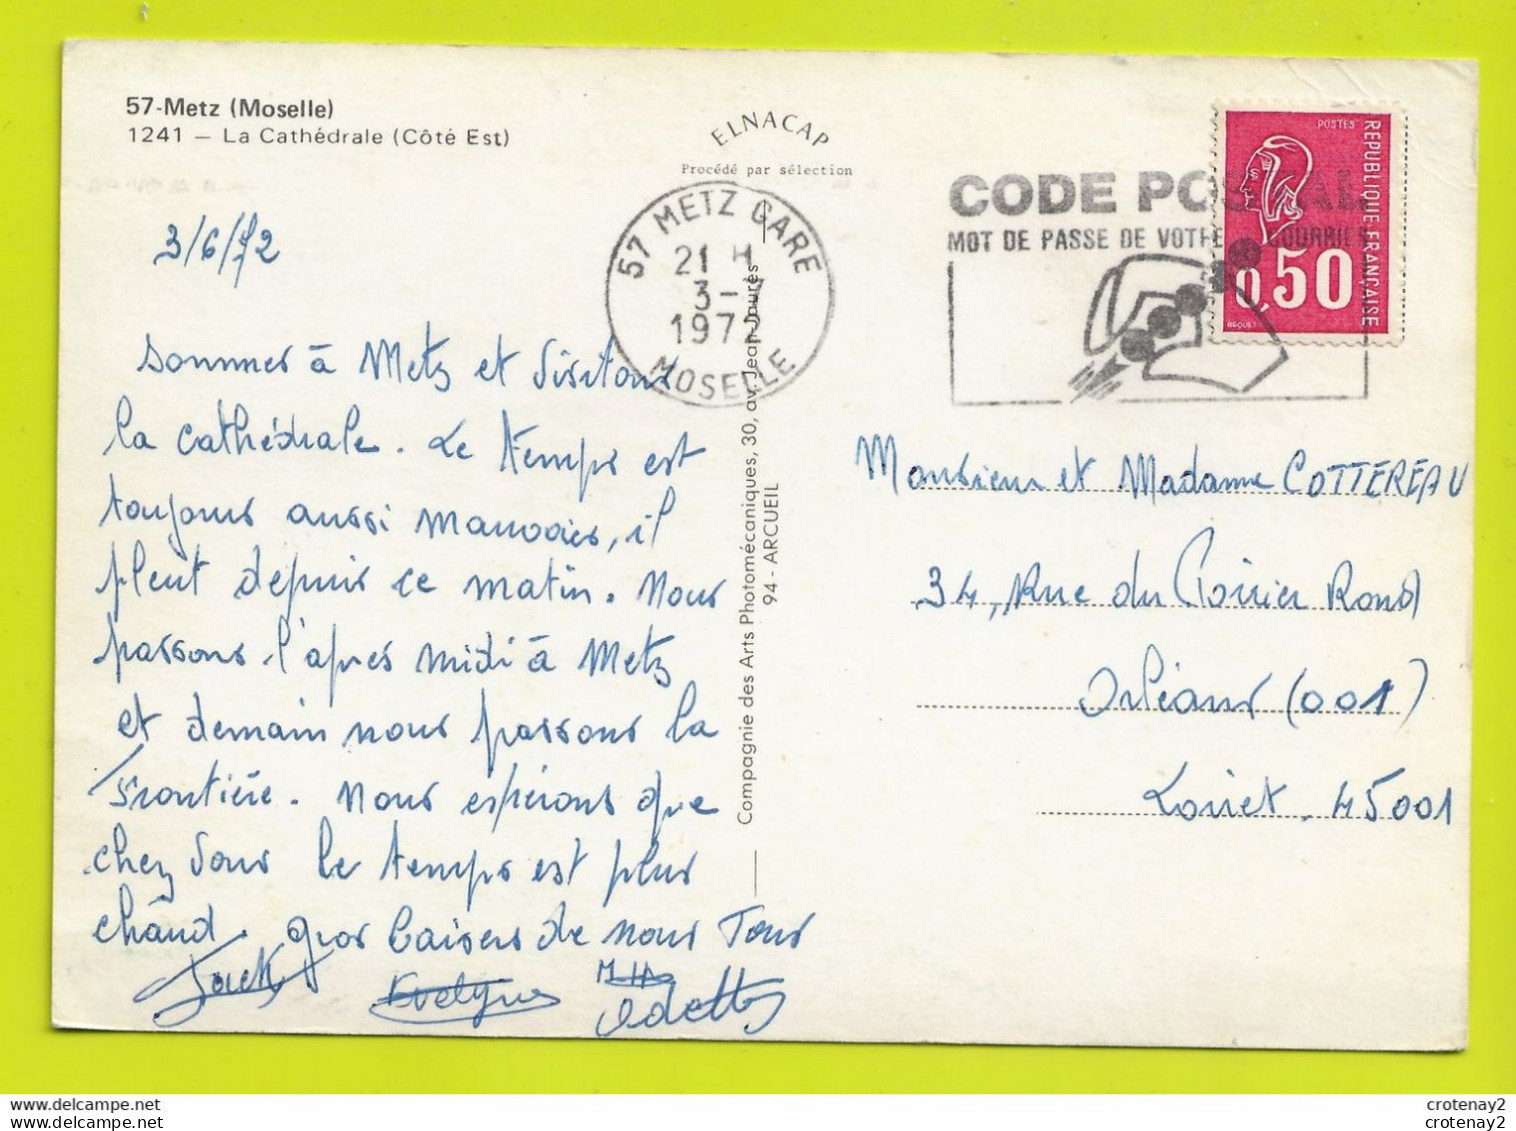 57-Metz (Moselle)
1241 — La Cathédrale (Côté Est)
ELNACAP
Procédé par sélection
3/6/72
57 METZ GARE
21 H
3-7
1972
MOSELLE
CODE POSTAL
MOT DE PASSE DE VOTRE COURRIER
POSTES
REPUBLIQUE FRANÇAISE
0,50
BEQUET
Sommes à Metz et visitons
la cathédrale. Le temps est
toujours aussi mauvais, il
pleut depuis ce matin. Nous
passons l'après midi à Metz
et demain nous passons la
frontière. Nous espérons que
chez vous le temps est plus
chaud. gros baisers de nous Tous
Jack Evelyne Odette
Compagnie des Arts Photomécaniques, 30, av. Jean-Jaurès
94 - ARCUEIL
Monsieur et Madame COTTEREAU
34, Rue du Poirier Rond
Orléans (001)
Loiret. 45001
crotenay2
crotenay2
crotenay2
crotenay2